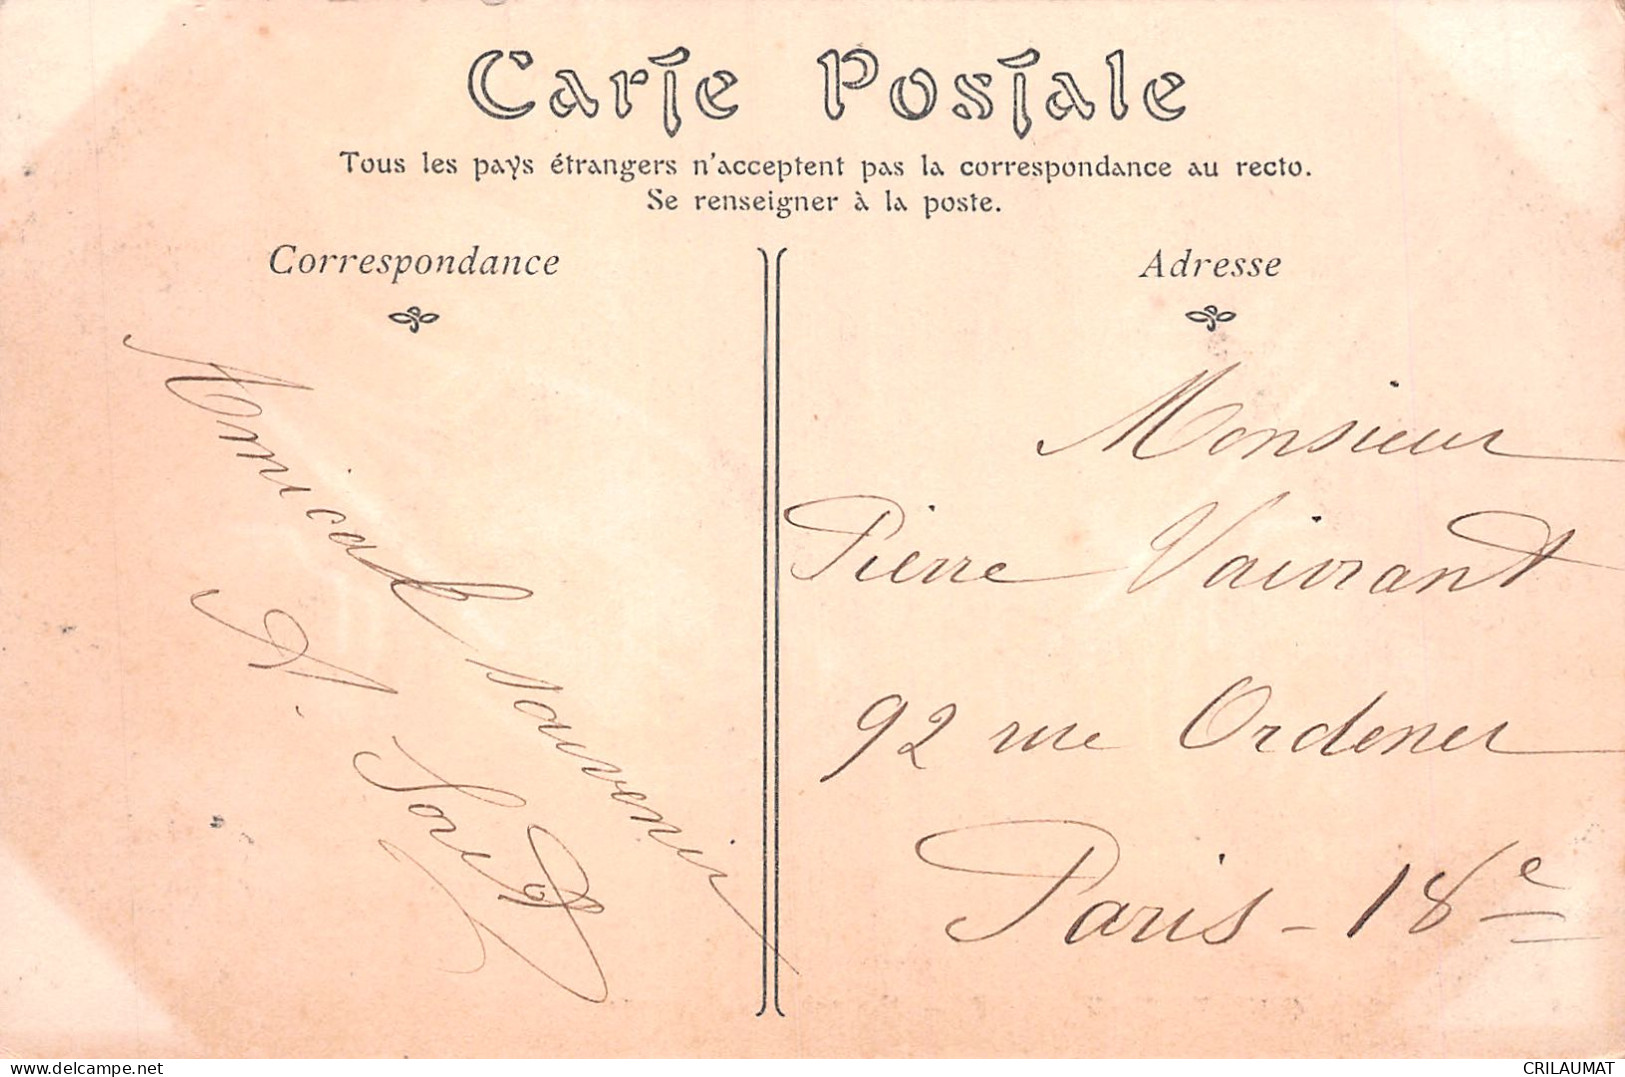 Carte Postale
Tous les pays étrangers n'acceptent pas la correspondance au recto.
Se renseigner à la poste.
Correspondance
Amical souvenir
A.
Adresse
Monsieur
Pierre Vaivrant
92 rue Ordener
Paris - 18e
delcampe.net
CRILAUMAT